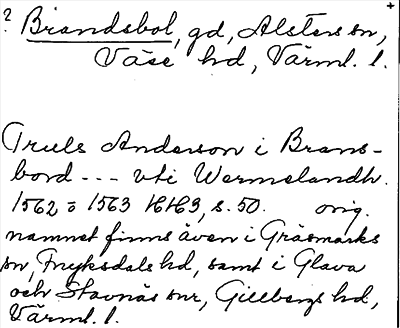 ? Brandsbol, gd, Alsters sn,
Väse hd, Värml. l.
Truls Anderson i Brans-
bord --- vti Wermelandh.
1562 o 1563 HH 3, s. 50. orig.
namnet finns även i Gräsmarks
sn, Fryksdals hd, samt i Glava
och Stavnäs snr, Gillbergs hd,
Värml. l.